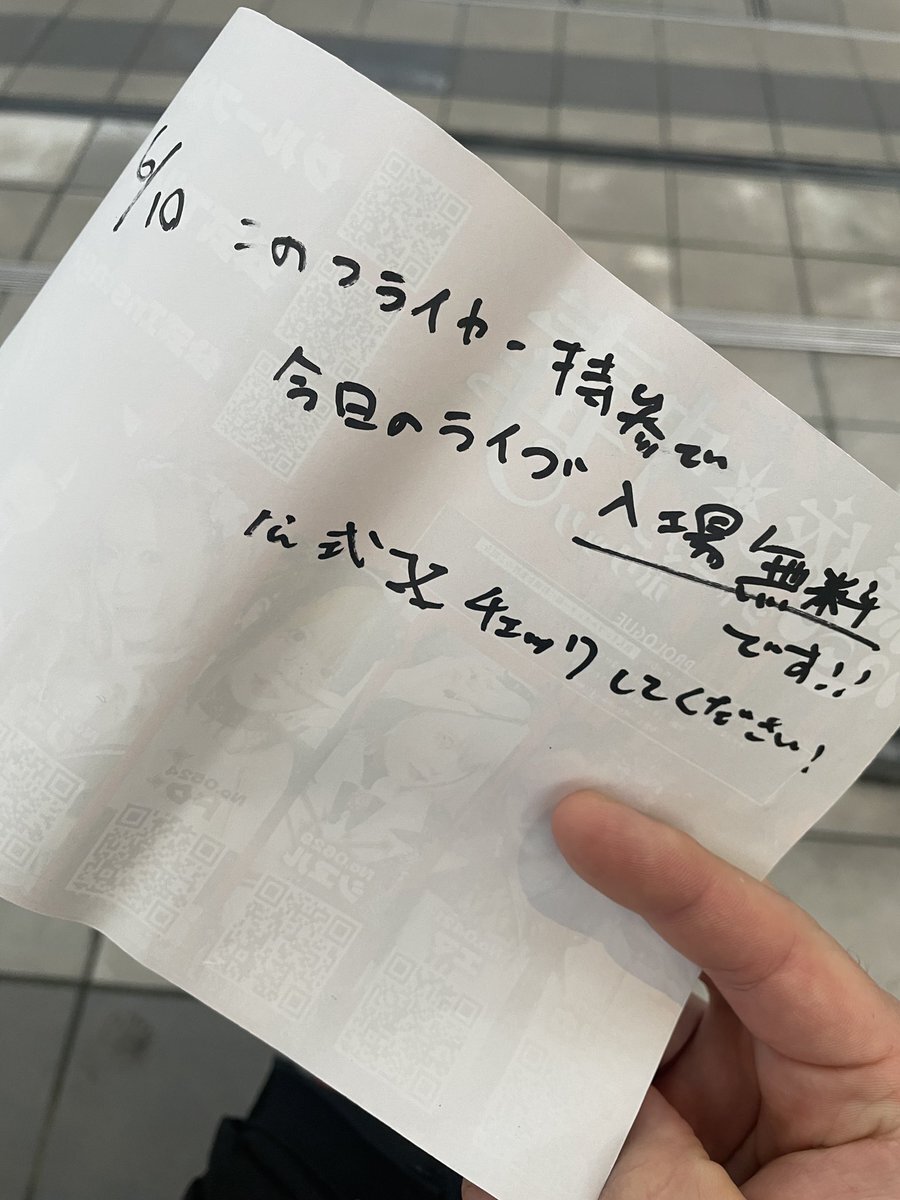 6/10 このフライヤー持参で
今日のライブ 入場無料
です!!
公式X チェックしてください!